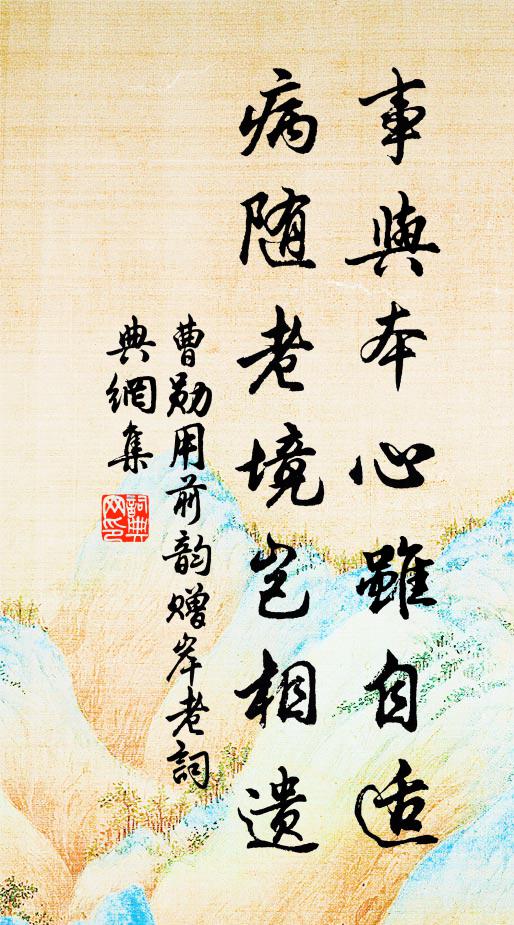 事與本心雖自适
病随老境岂相遗
曹勋用前韵赠岸老詞
典網集
詞典网印